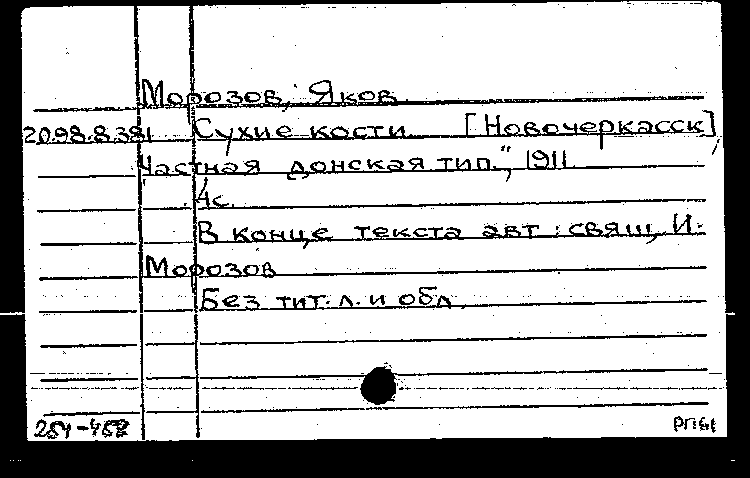 Морозов, Яков
20.98.8.381 Сухие кости [Новочеркасск],
"Частная донская тип.", 1911.
4с.
В конце текста авт: свящ, И.
Морозов
Без тит. л. и обл.
254-458